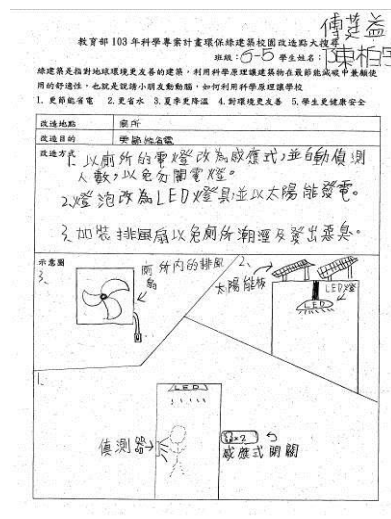 教育部 103 年科學專案計畫環保綠建築校園改造點大搜尋
班級：6-5 學生姓名：陳柏
綠建築是指對地球環境更友善的建築，利用科學原理讓建築物在最節能減碳中兼顧使
用的舒適性，也就是說請小朋友動動腦，如何利用科學原理讓學校
1. 更節能省電 2.更省水 3.夏季更降溫 4.對環境更友善 5.學生更健康安全
改造地點 廁所
改造目的 更節能省電
改造方式 1. 以廁所的電燈改為感應式，並自動偵測
人數，以免勿關電燈。
2.燈泡改為LED燈具，並以太陽能發電。
3.加裝排風扇以免廁所潮溼及發出惡臭。
示意圖
3、
廁所內的排風
扇
2、
太陽能板
LED燈
LED
1、
LED
偵測器
x2
感應式開關